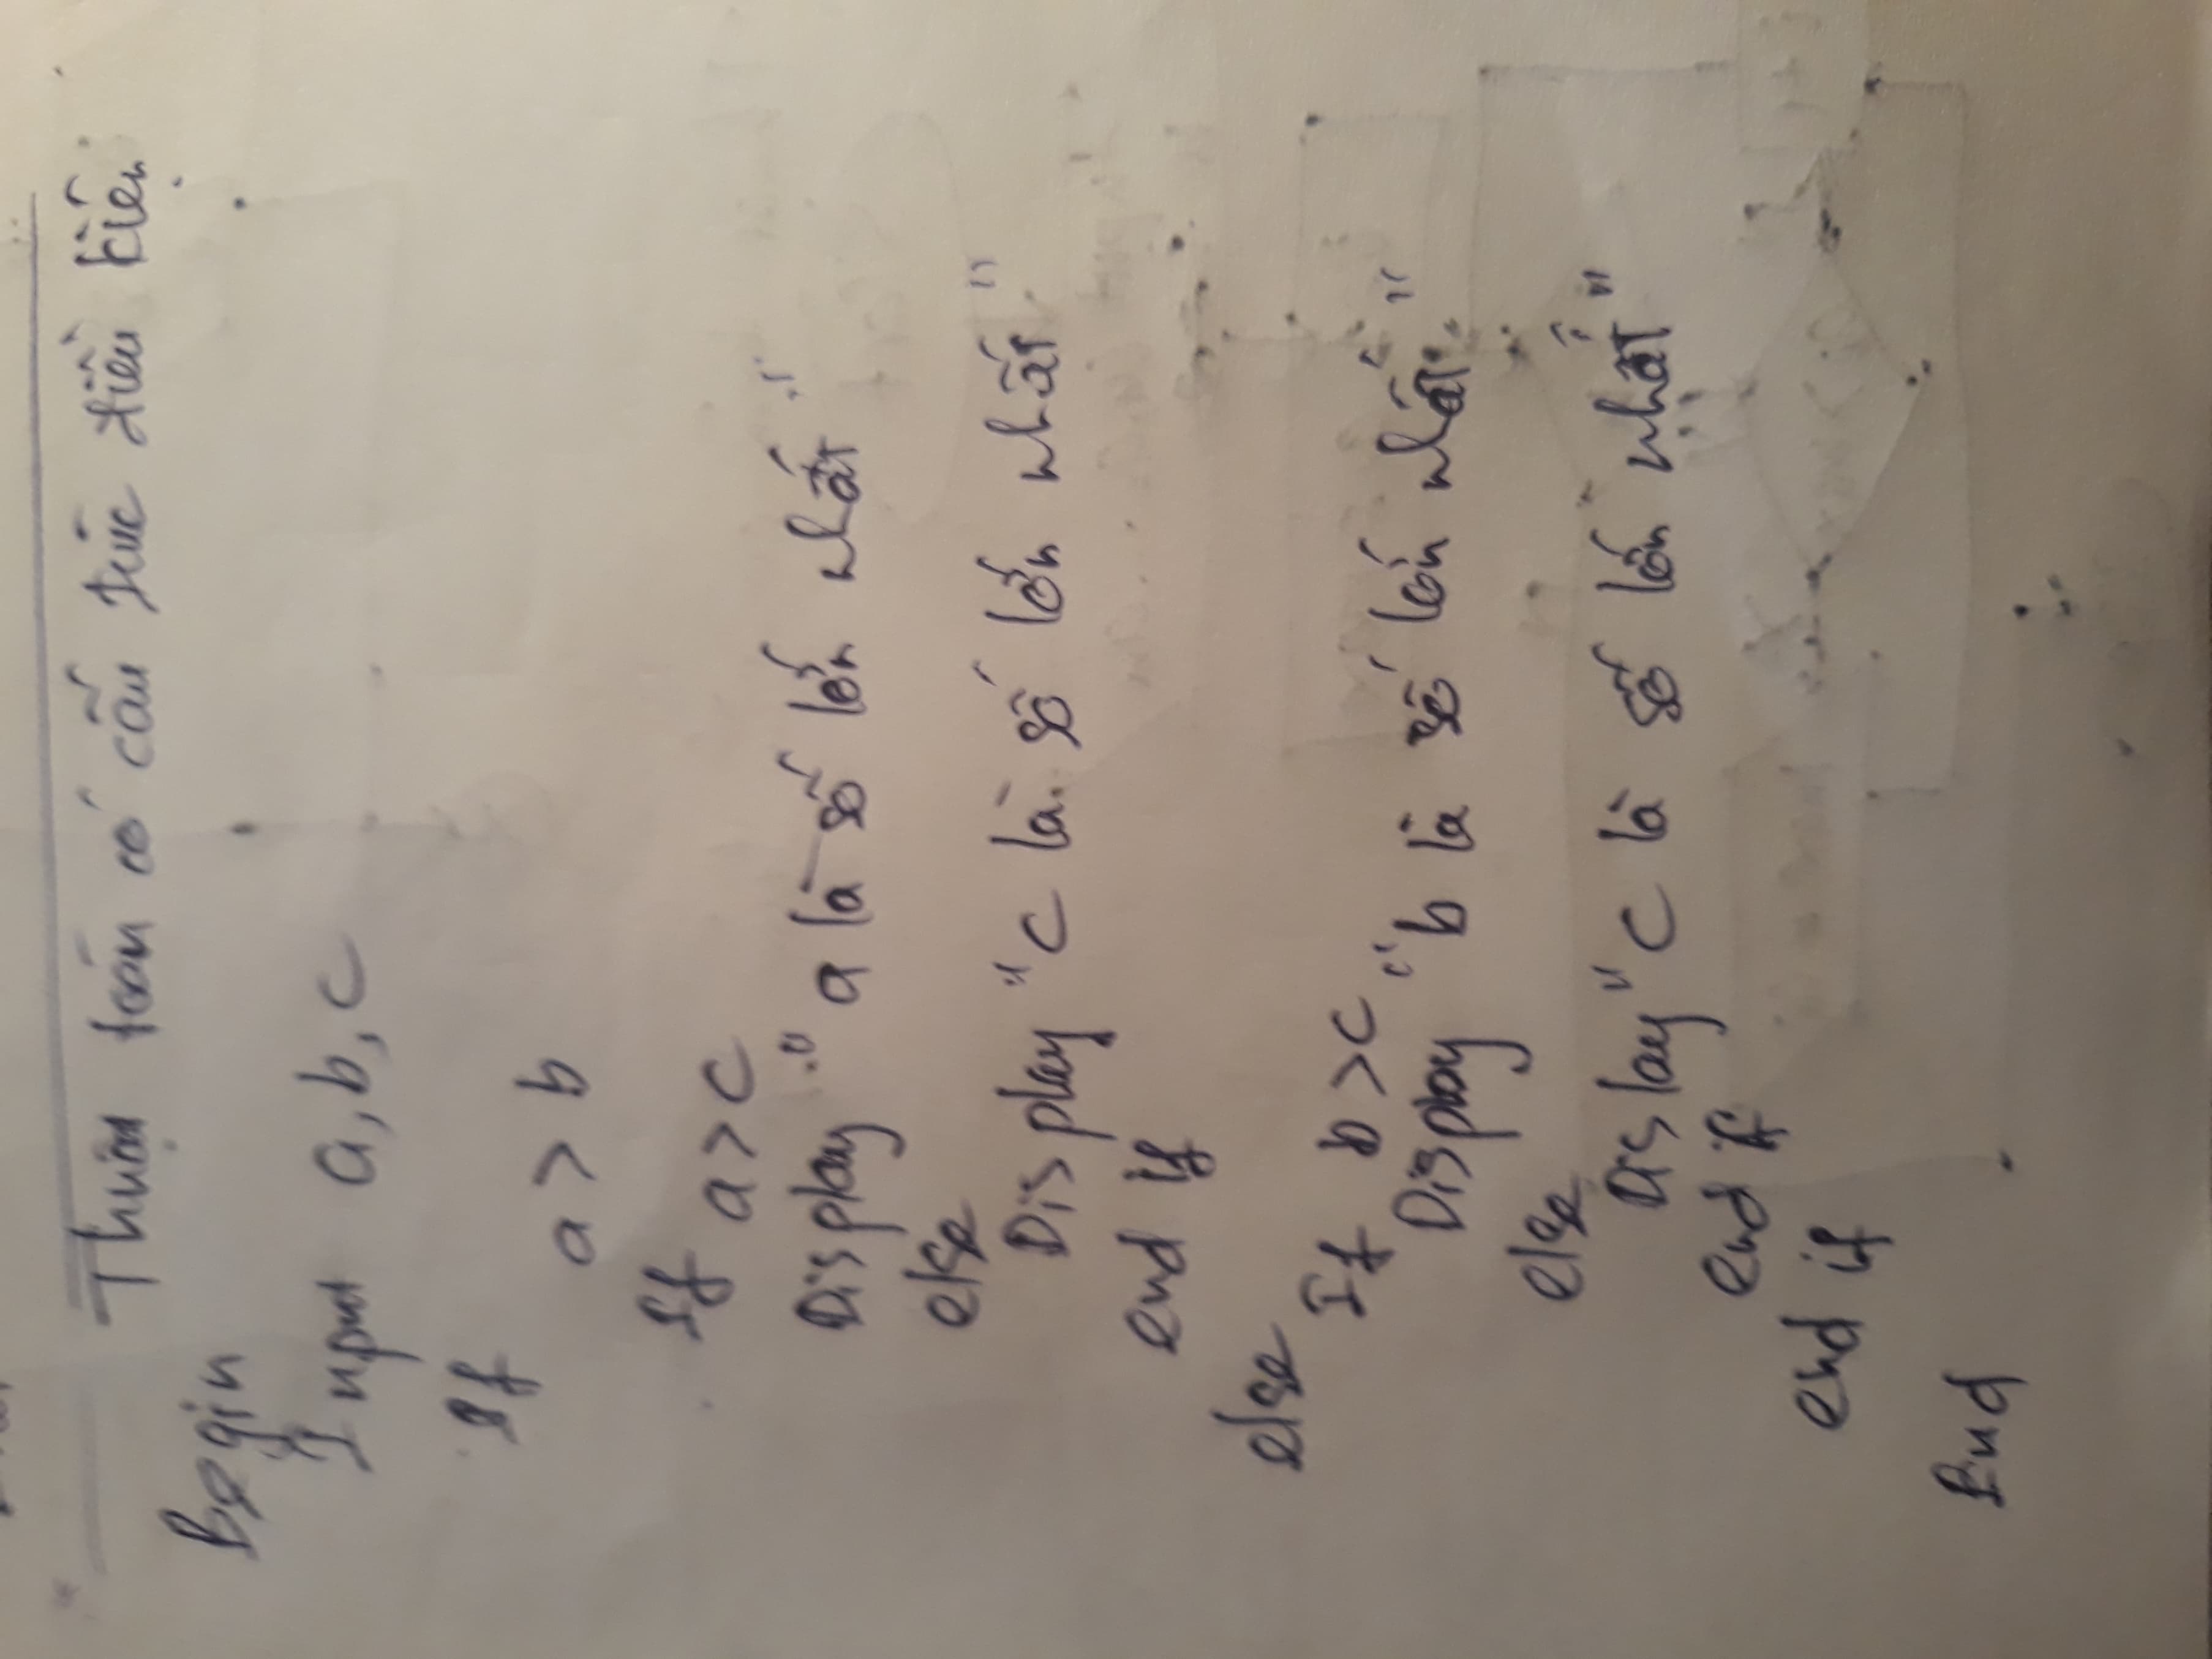 Thuật toán có cấu trúc điều kiện
Begin
Input a, b, c
If
a > b
If a > c
Display "a là số lớn nhất"
else
Display "c là số lớn nhất"
end if
else
If b > c
Display "b là số lớn nhất"
else
Dislay "c là số lớn nhất"
end if
end if
End